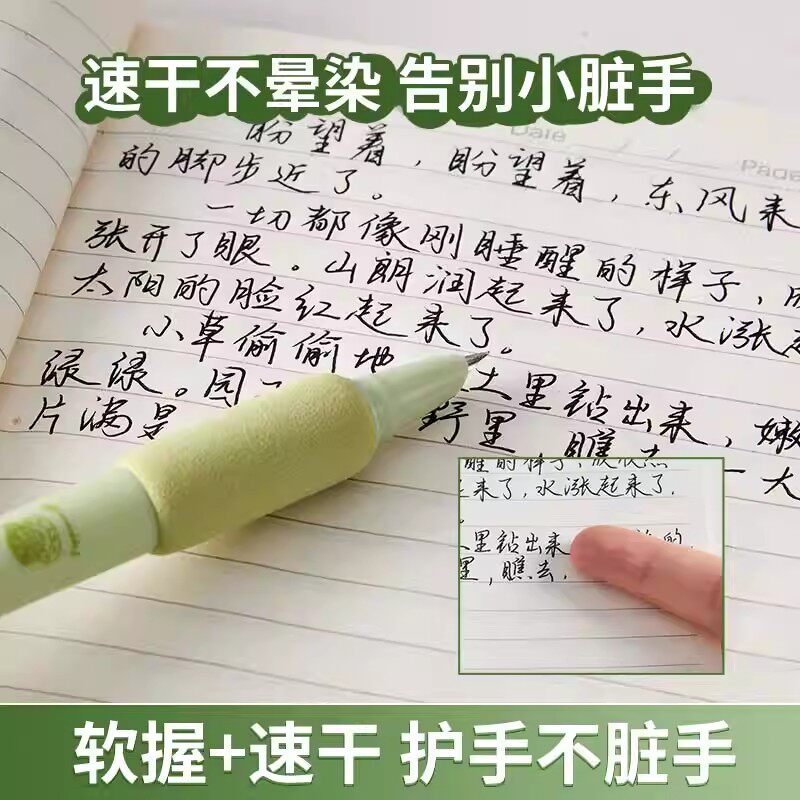 速干不晕染 告别小脏手
Date / /
Page
盼望着，盼望着，东风来
的脚步近了。
一切都像刚睡醒的样子，
张开了眼。山朗润起来了，水涨起
太阳的脸红起来了。
小草偷偷地 土里钻出来，嫩
绿绿。园 野里，瞧去 一大
片满是
醒的样子，欣欣然
来了，水涨起来了，
里钻出来 的，
里，瞧去，
软握+速干 护手不脏手